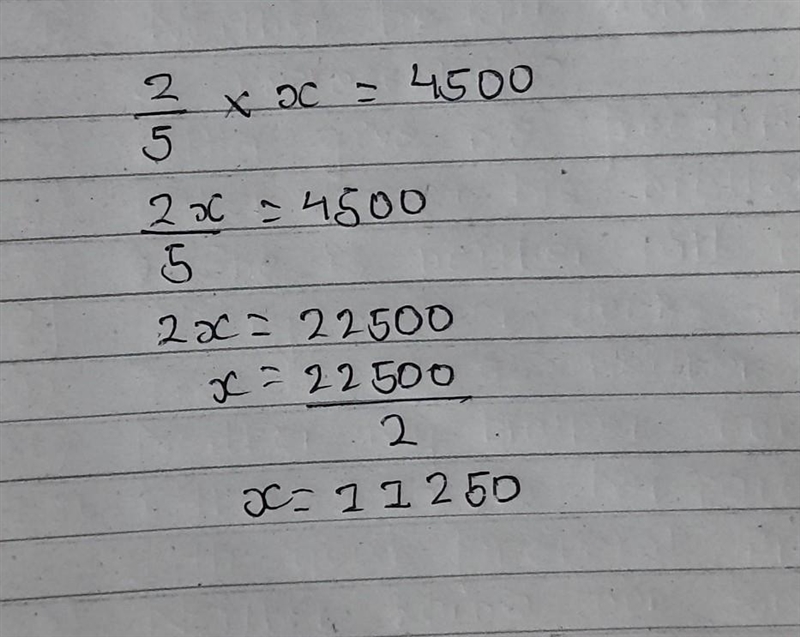 2/5 × x = 4500
2x/5 = 4500
2x = 22500
x = 22500/2
x = 11250